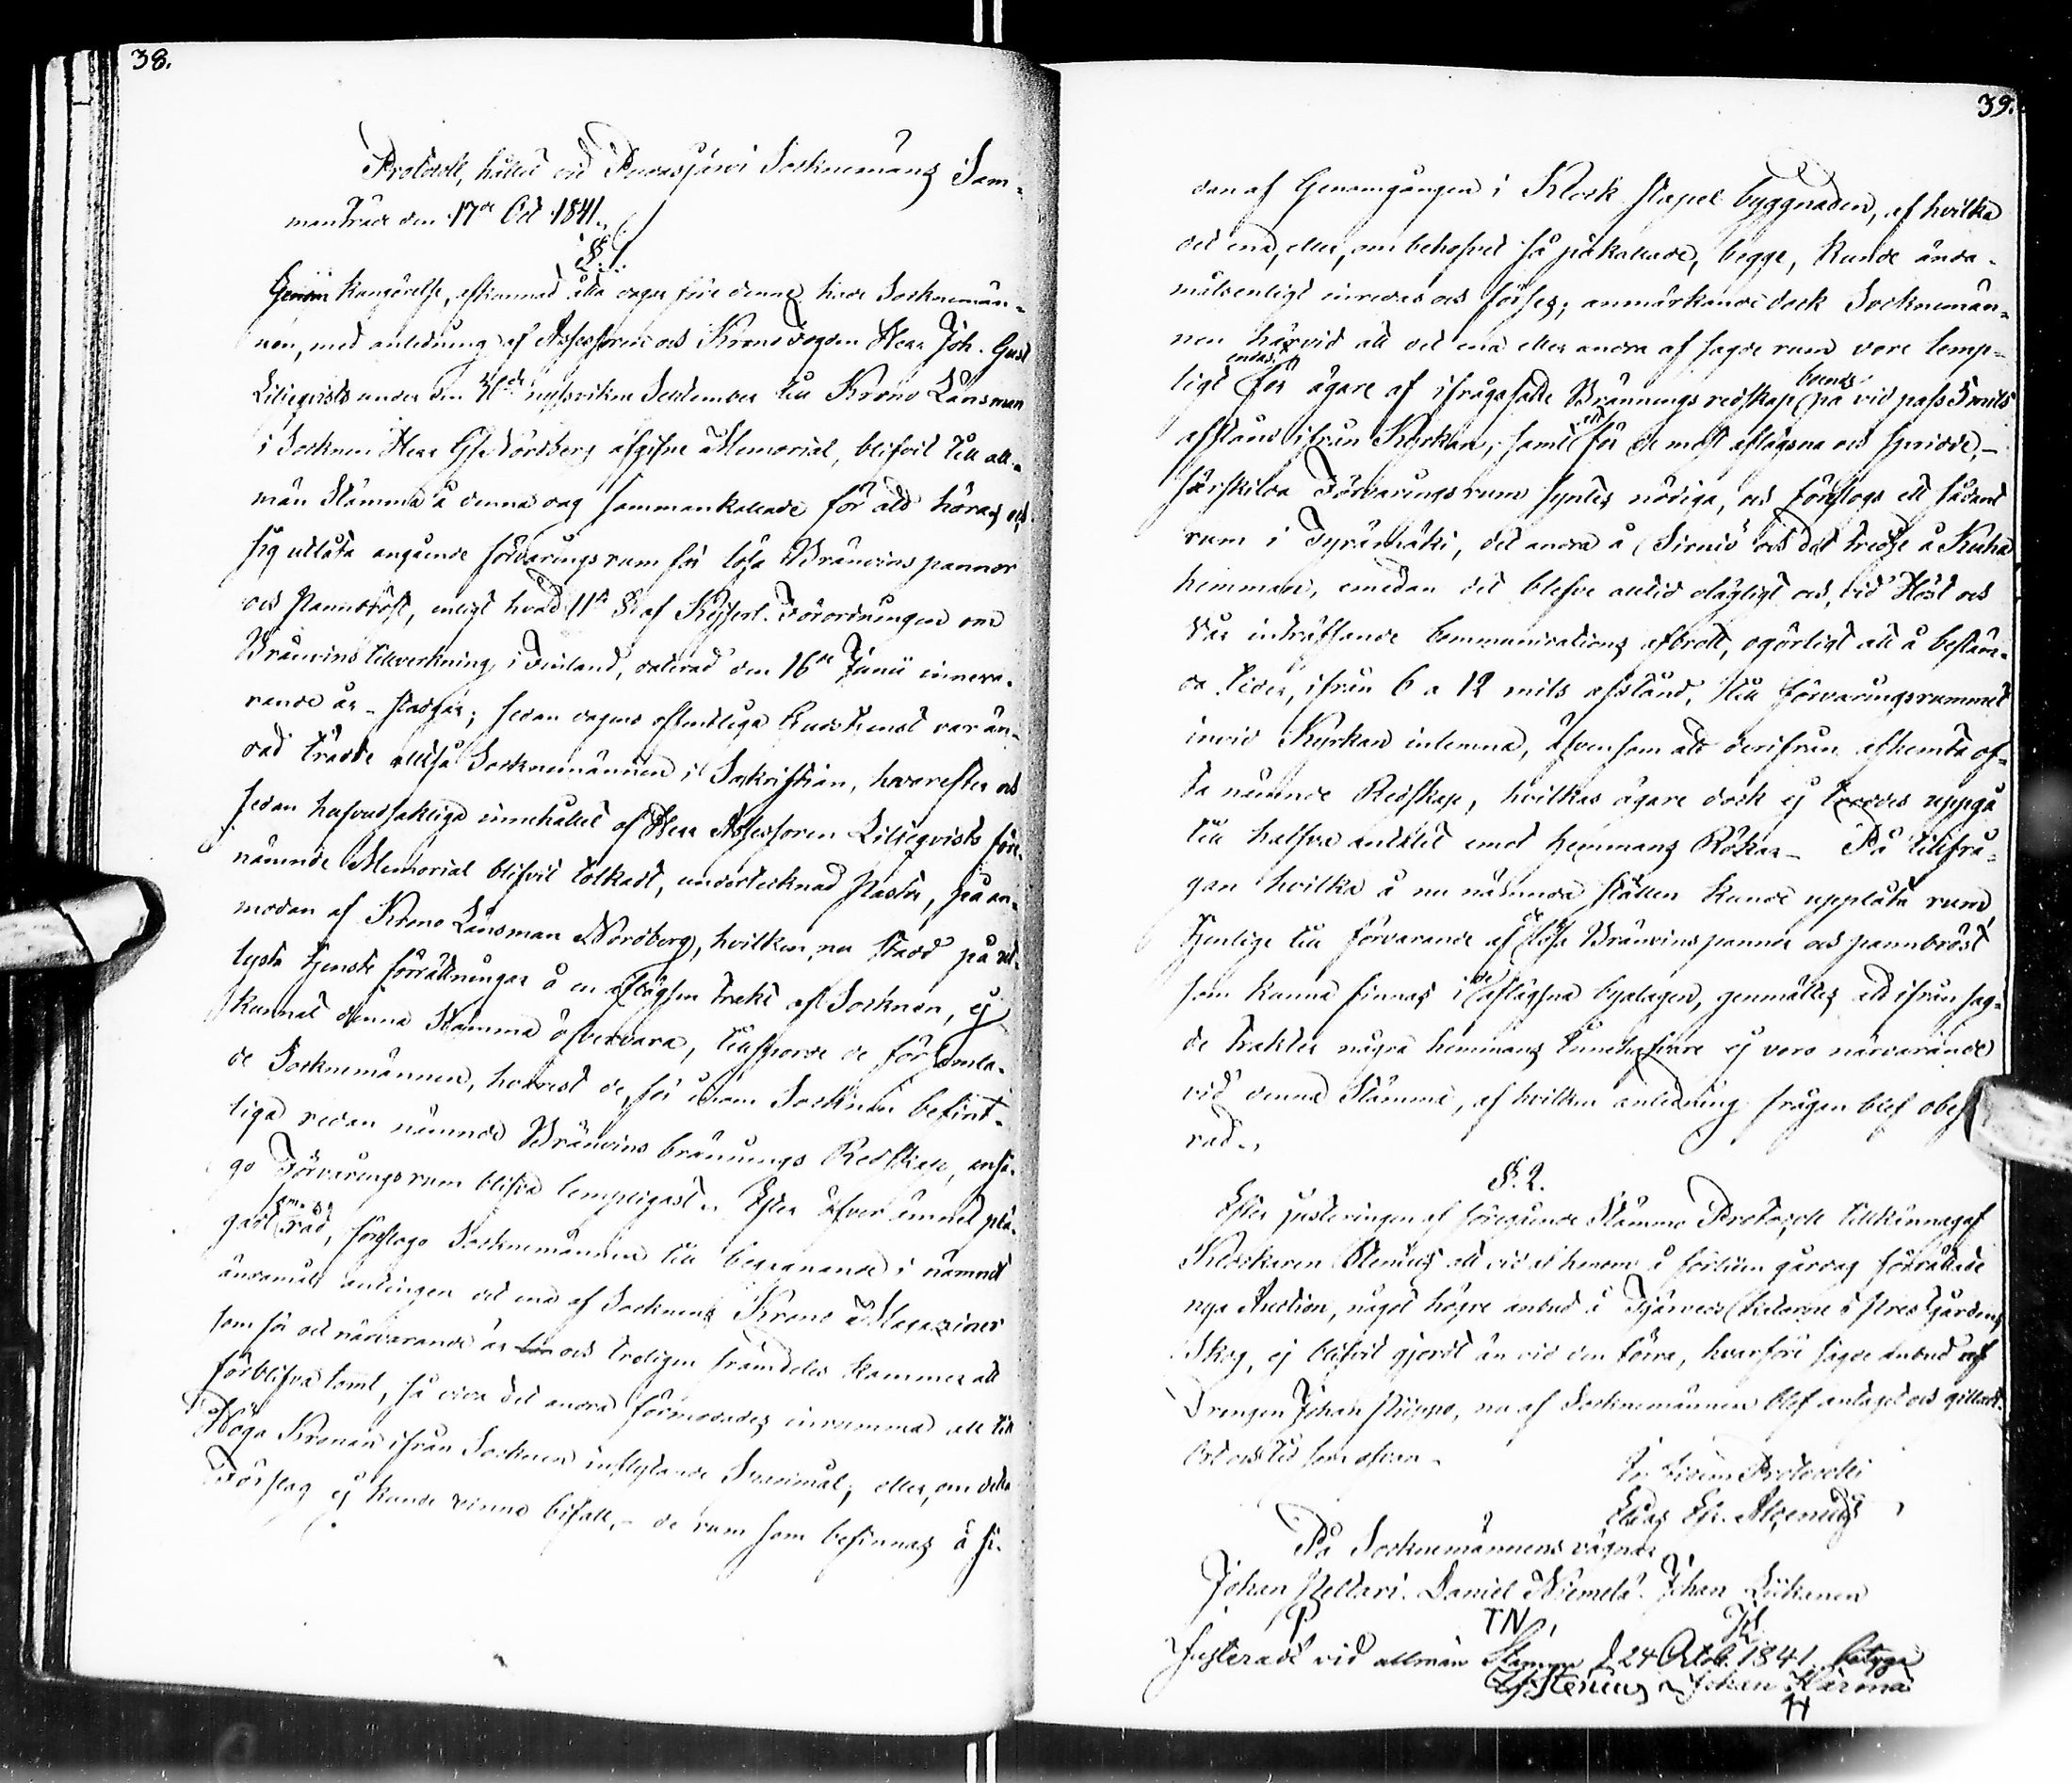 38.
Protocoll, hållet vid Pudasjärvi Socknemäns Sam-
manträde den 17de Oct 1841.
§ 1.
Genom kungörelse, afkunnad åtta dagar före denna, hade Socknemän-
nen, med anledning af Assessoren och Kronofogden Herr Joh. Gust
Liljeqvists under den nyssvikne September till Krono Länsman
i Socknen Herr Nordberg afgifne Memorial, blifvit till all-
män Stämma å denna dag sammankallade för att höras och
sig utlåta angående förvaringsrum för lösa Bränvinspannor
och Pannbröst, enligt hvad 11te § af Kejserl. Förordningen om
Bränvinstillverkning i Finland, daterad den 16de Junii inneva-
rande år stadgar; sedan dagens offentliga Gudstjenst var än-
dad trädde alltså Socknemännen i Sakristian, hvarefter och
sedan hufvudsakliga innehållet af Herr Assessoren Liljeqvists före-
nämnde Memorial blifvit tolkadt, undertecknad Pastor, på an-
modan af Krono Länsman Nordberg, hvilken, nu stadd på
tjenste förrättningar å en aflägsen trakt af Socknen, ej
kunnat denna Stämma öfvervara, tillsporde de församla-
de Socknemännen, hvarest de, för inom Socknen befint-
liga redan nämnde Bränvins brännings Redskap, anså-
go Förvaringsrum blifva lempligast. Efter öfver ämnet plä-
gadt samråd, föreslogo Socknemännen till begagnande i nämndt
ändamål antingen det ena af Socknens Krono Magaziner
som för det närvarande är och troligen framdeles kommer att
förblifva tomt, så vida det andra förmodades inrymma all till
Höga Kronan ifrån Socknen inflytande Spannmål; eller, om detta
Förslag ej kunde vinna bifall, - de rum som befinnas å si-
39.
dan af Genomgången i Klockstapel byggnaden, af hvilka
det ena, eller, om behofvet så påkallade, begge, kunde ända-
målsenligt inredas och förses; anmärkande dock Socknemän-
nen härvid att det ena eller andra af sagde rum vore lemp-
ligt endast för ägare af ifrågasatte Bränningsredskap boende på vid pass 3 mils
afstånd ifrån Kyrkan, samt att för de mest aflägsna och spridde, -
särskilda Förvaringsrum syntes nödiga, och föreslogs ett sådant
rum i Jyrkänkoski, det andra å Sirniö och det tredje å Kuha
hemman, emedan det blefve alltid olägligt och, vid Höst och
Vår inträffande Communications afbrott, ogörligt att å bestäm-
da tider, ifrån 6 a 12 mils afstånd, till förvaringsrummet
invid Kyrkan inlemna, äfvensom att derifrån afhemta of-
ta nämnde Redskap, hvilkas ägare dock ej troddes uppgå
till halfva antalet emot hemmans Rökar. - På tillfrå-
gan hvilka å nu nämnda ställen kunde upplåta rum
tjenlige till förvarande af de lösa Bränvinspannor och pannbröst
som kunna finnas i de aflägsna byalagen, genmältes att ifrån sag-
de trakter några hemmans Innehafvare ej voro närvarande
vid denna Stämma, af hvilken anledning frågan blef obesva-
rad.
§. 2.
Efter justeringen af föregående Stämmo Protocoll tillkännagaf
Klockaren Stenius att vid den å förliden gårdag förrättade
nya Auction, något högre anbud å Tjärved i Prestgårdens
Skog, ej blifvit gjordt än vid den förra, hvarföre sagde anbud af
Drengen Johan Piippo, nu af Socknemännen blef antaget och gilladt.
Ort och tid som ofvan.
In fidem Protocolli
Elias Eh. Alcenius
På Socknemännens vägnar
Johan Peltari. Daniel Niemelä. Johan Liikanen
P TN JL
Justeradt vid allmän Stämma d 24 Octob. 1841. betyga
Stenius Johan Kärenä